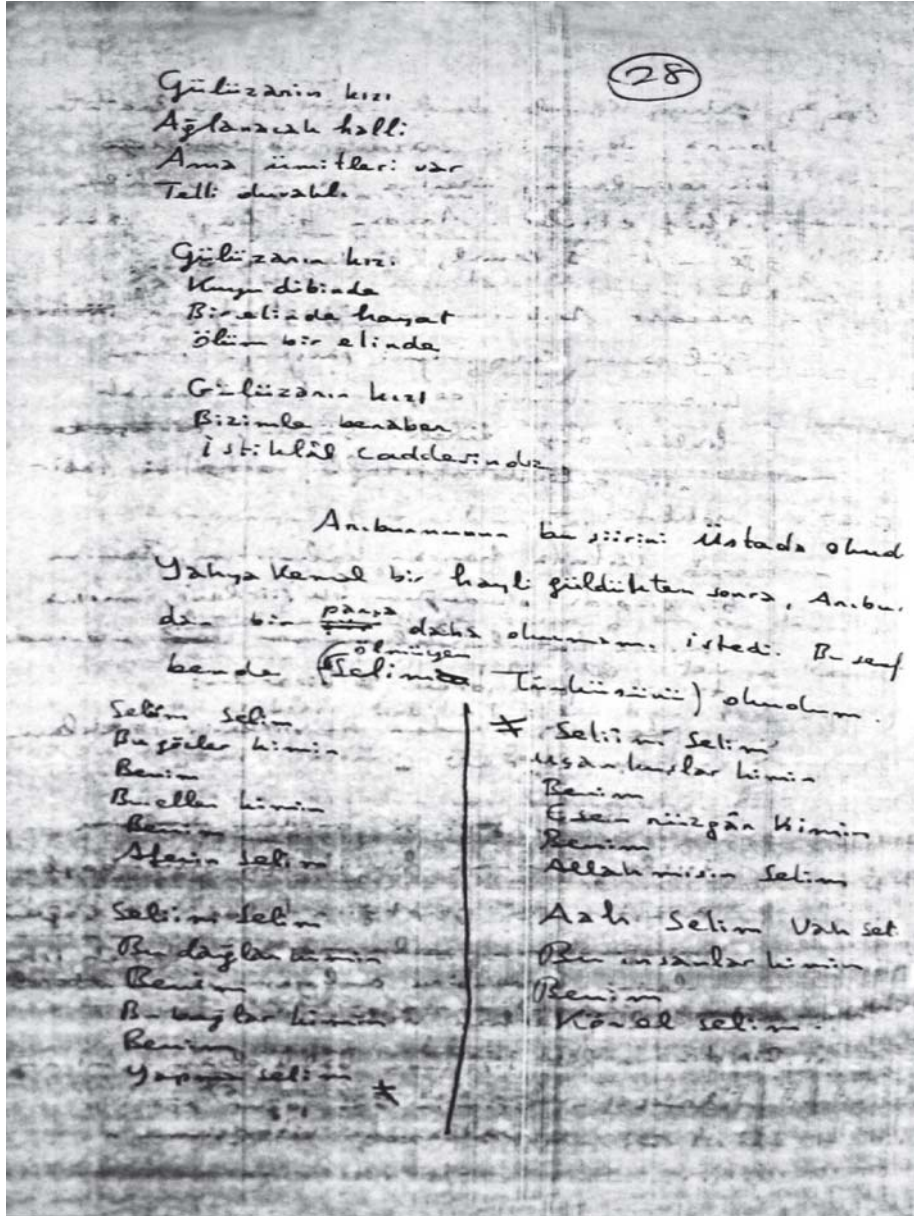 28
Gülüzanın kızı
Ağlanacak halli
Ama ümitleri var
Telli duvaklı
Gülüzanın kızı
Kuyu dibinde
Bir elinde hayat
ölüm bir elinde
Gülüzanın kızı
Bizimle beraber
İstiklâl caddesinde
Arıburnunun bu şiirini Üstada okud
Yahya Kemal bir hayli güldükten sonra, Arıbu.
dan bir parça daha okumamı istedi. Bu sef
bende (ölmüyen Selim Türküsünü) okudum.
Selim Selim
Bu gözler kimin
Benim
Bu eller kimin
Benim
Aferin Selim
Selim Selim
Bu dağlar kimin
Benim
Bu bağlar kimin
Benim
Yapma Selim *
* Selim Selim
uçan kuşlar kimin
Benim
Esen rüzgâr kimin
Benim
Allahmısın Selim
Aah Selim Vah sel
Bu insanlar kimin
Benim
Kör ol Selim.